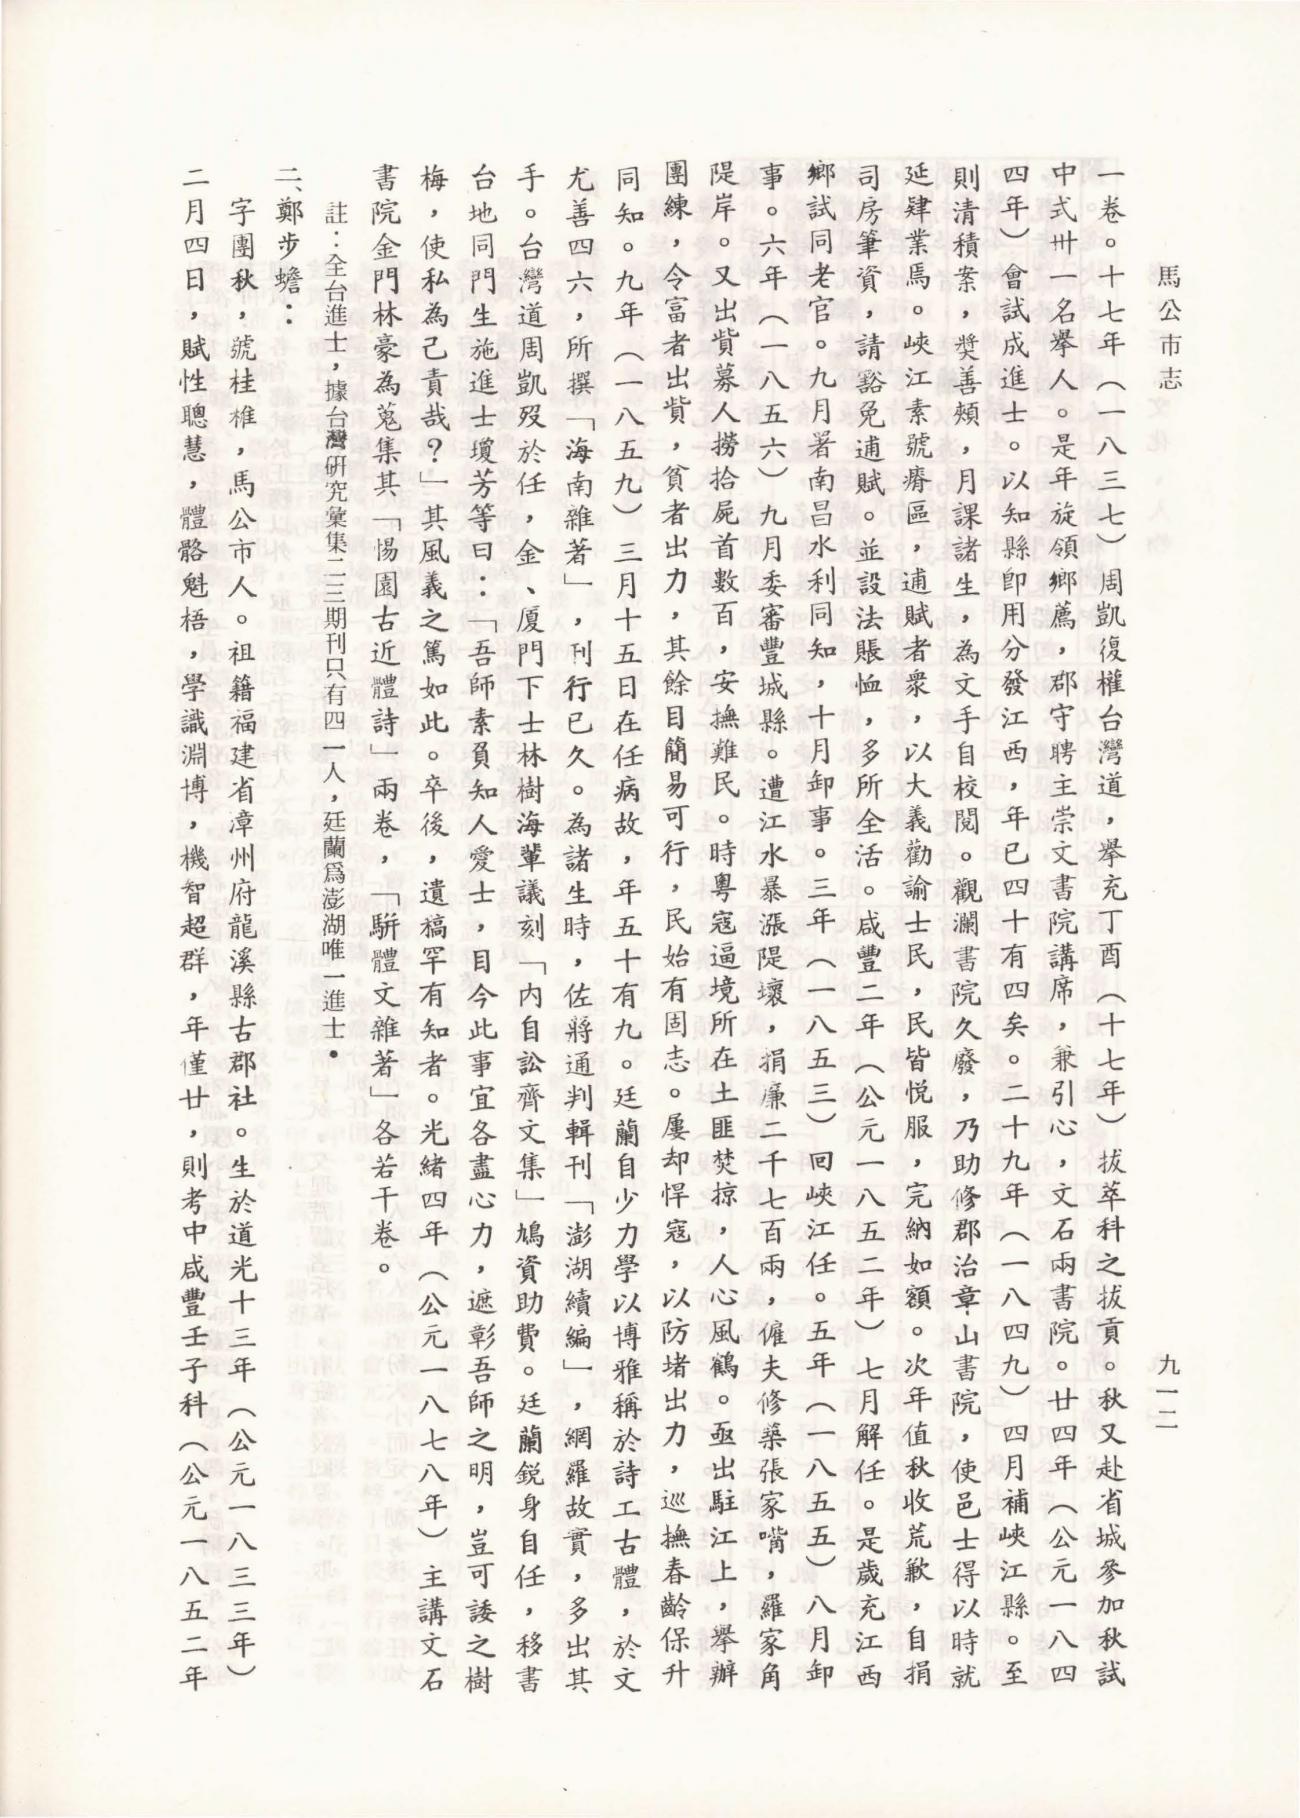 馬公市志
九一二
一卷。十七年（一八三七）周凱復權台灣道，舉充丁酉（十七年）拔萃科之拔貢。秋又赴省城參加秋試
中式卅一名舉人。是年旋領鄉薦，郡守聘主崇文書院講席，兼引心，文石兩書院。廿四年（公元一八四
四年）會試成進士。以知縣卽用分發江西，年已四十有四矣。二十九年（一八四九）四月補峽江縣。至
則清積案，獎善頰，月課諸生，為文手自校閱。觀瀾書院久廢，乃助修郡治章山書院，使邑士得以時就
延肄業焉。峽江素號瘠區，逋賦者衆，以大義勸諭士民，民皆悅服，完納如額。次年值秋收荒歉，自捐
司房筆資，請豁免逋賦。並設法賬恤，多所全活。咸豐二年（公元一八五二年）七月解任。是歲充江西
鄉試同老官。九月署南昌水利同知，十月卸事。三年（一八五三）回峽江任。五年（一八五五）八月卸
事。六年（一八五六）九月委審豐城縣。遭江水暴漲隄壞，捐廉二千七百兩，僱夫修築張家嘴，羅家角
隄岸。又出貲募人撈拾屍首數百，安撫難民。時粵寇逼境所在土匪焚掠，人心風鶴。亟出駐江上，舉辦
團練，令富者出貲，貧者出力，其餘目簡易可行，民始有固志。屢却悍寇，以防堵出力，巡撫春齡保升
同知。九年（一八五九）三月十五日在任病故，年五十有九。廷蘭自少力學以博雅稱於詩工古體，於文
尤善四六，所撰「海南雜著」，刊行已久。為諸生時，佐蔣通判輯刊「澎湖續編」，網羅故實，多出其
手。台灣道周凱歿於任，金、廈門下士林樹海輩議刻「內自訟齊文集」鳩資助費。廷蘭銳身自任，移書
台地同門生施進士瓊芳等曰：「吾師素負知人愛士，目今此事宜各盡心力，遮彰吾師之明，豈可諉之樹
梅，使私為己責哉？」其風義之篤如此。卒後，遺槁罕有知者。光緒四年（公元一八七八年）主講文石
書院金門林豪為蒐集其「惕園古近體詩」兩卷，「駢體文雜著」各若干卷。
註：全台進士，據台灣研究彙集二三期刊只有四一人，廷蘭爲澎湖唯一進士。
二、鄭步蟾：
字團秋，號桂樵，馬公市人。祖籍福建省漳州府龍溪縣古郡社。生於道光十三年（公元一八三三年）
二月四日，賦性聰慧，體骼魁梧，學識淵博，機智超群，年僅廿，則考中咸豐壬子科（公元一八五二年